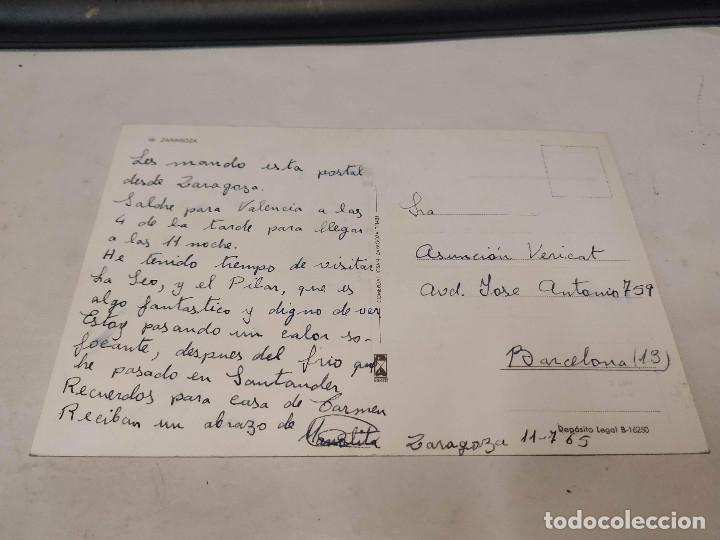 ZARAGOZA
Les mando esta postal
desde Zaragoza.
Saldre para Valencia a las
4 de la tarde para llegar
a las 11 noche.
He tenido tiempo de visitar
La Seo, y el Pilar, que es
algo fantastico y digno de ver
Estoy pasando un calor so-
focante, despues del frio que
he pasado en Santander
Recuerdos para casa de Carmen
Reciban un abrazo de Manolita
Sra
Asunción Vericat
Avd. Jose Antonio 759
Barcelona (13)
Depósito Legal B-16250
Zaragoza 11-7 65
todocoleccion.net